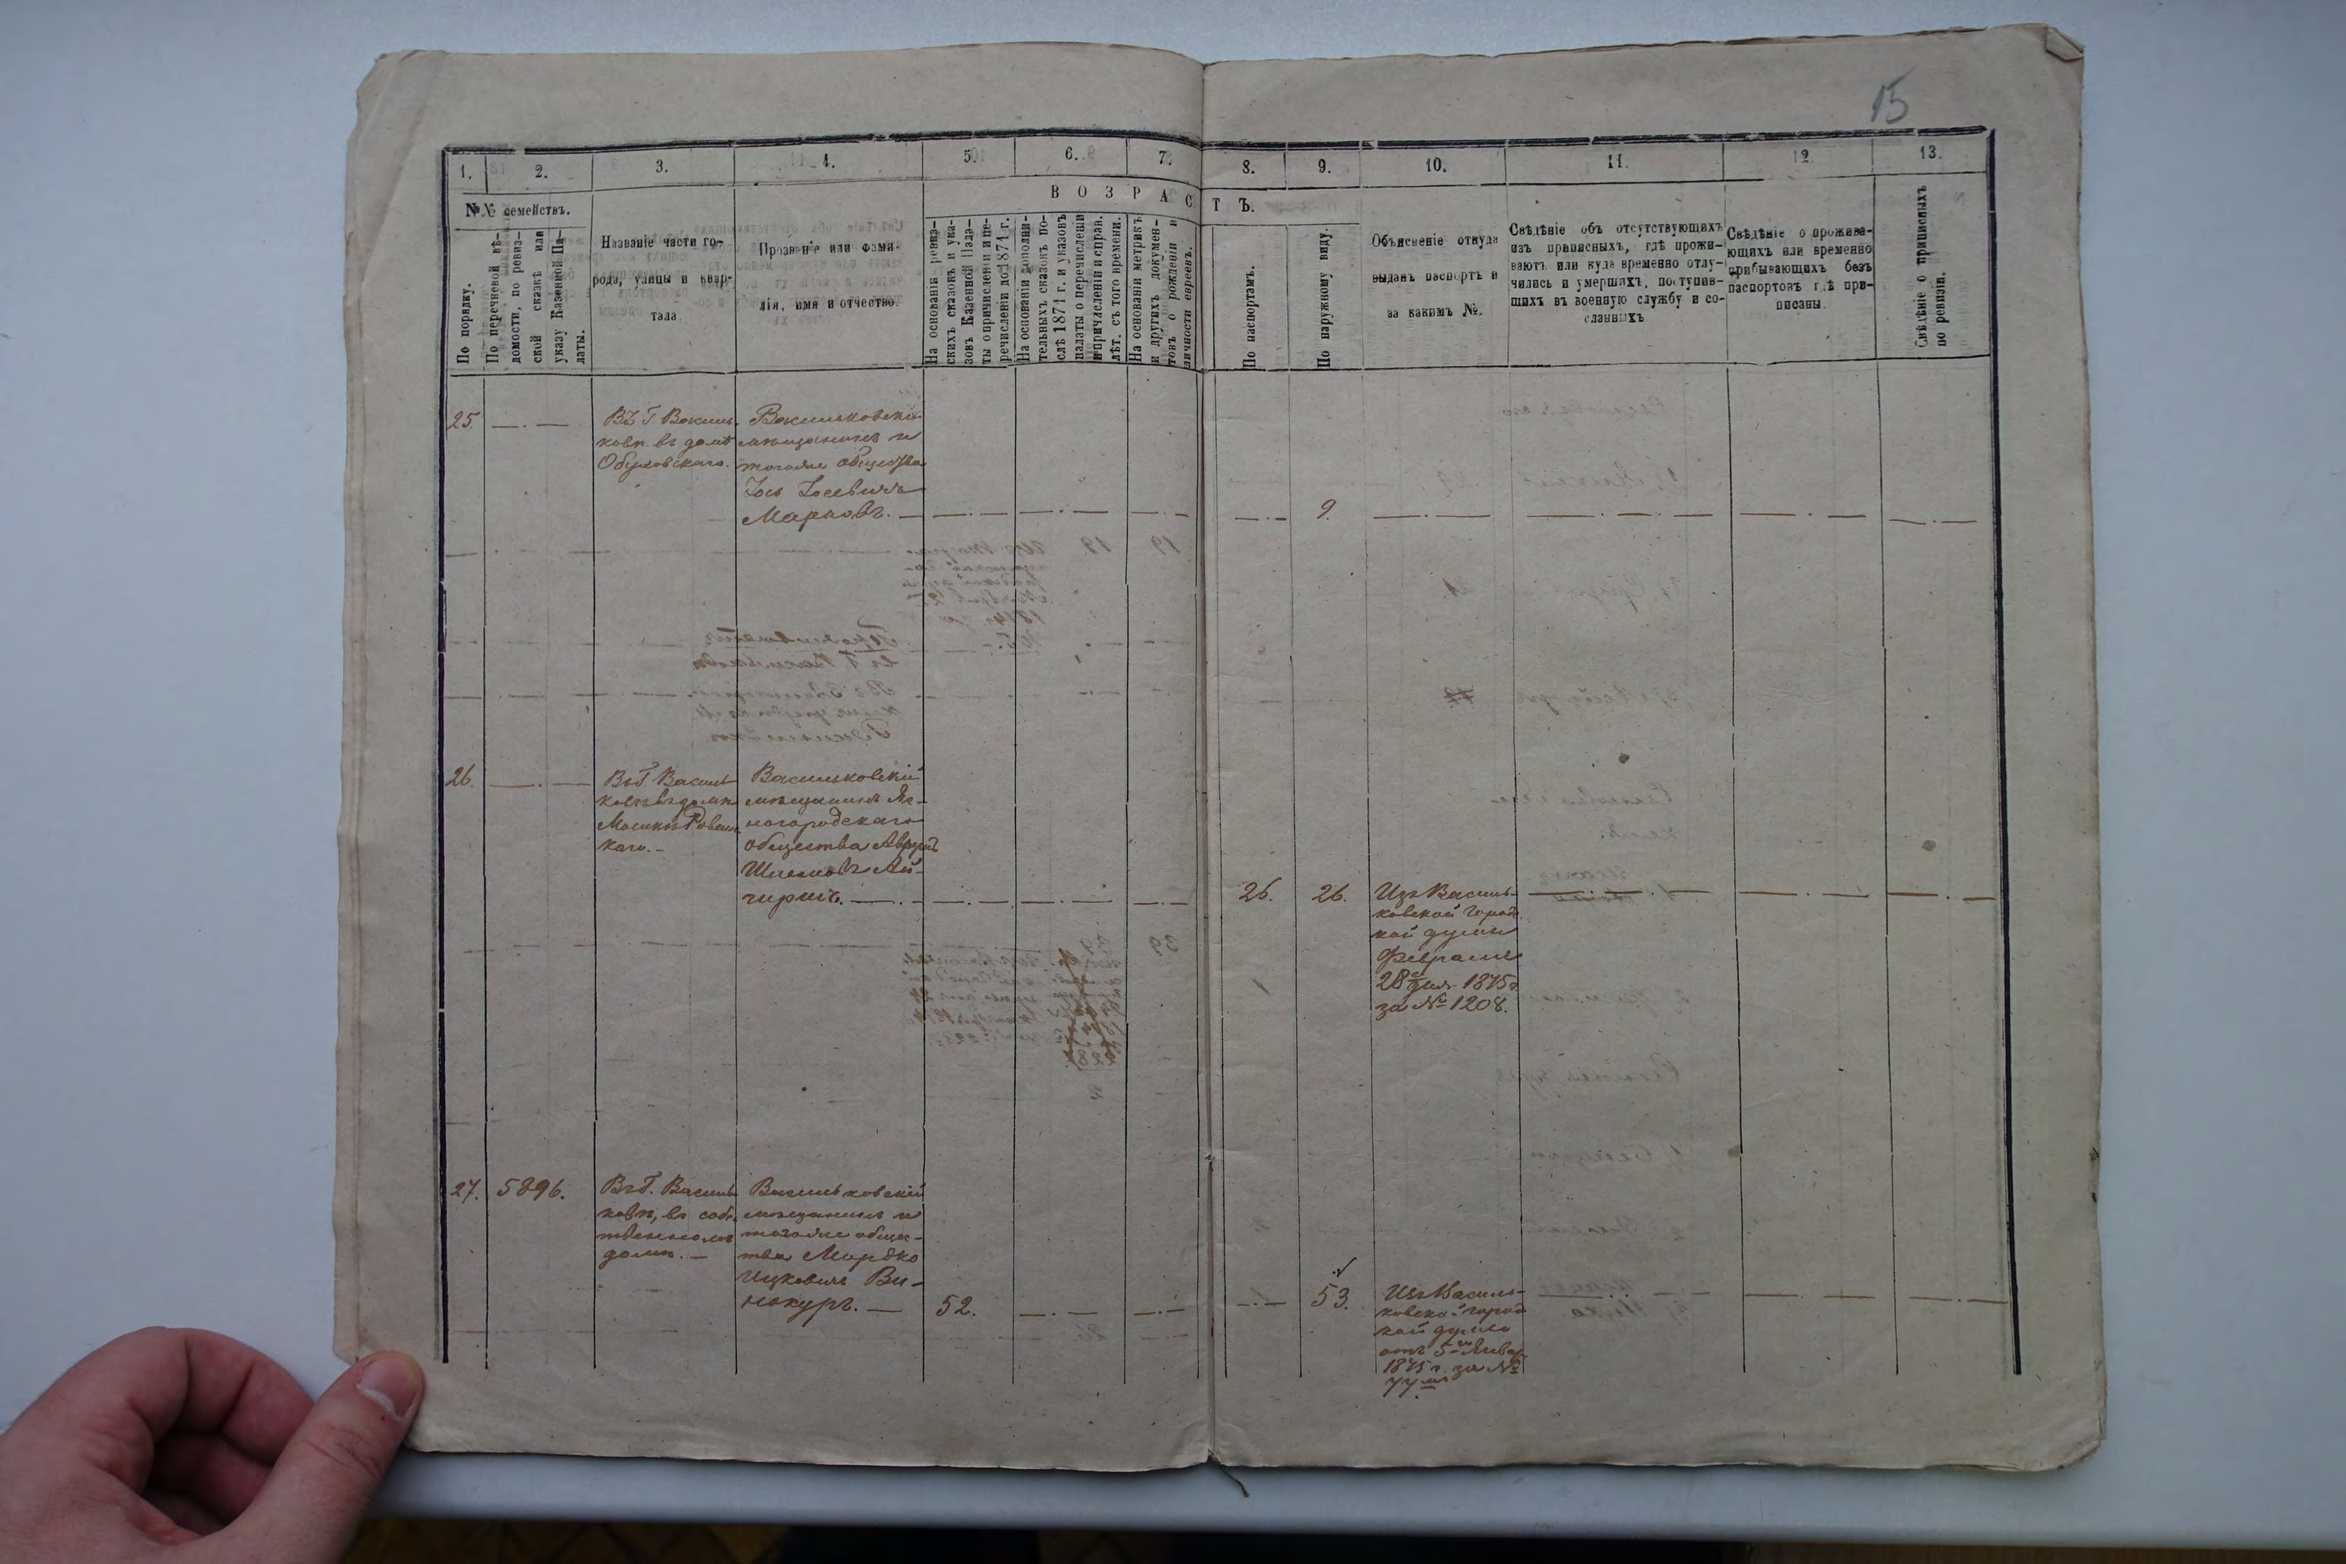 15
1. 2. 3. 4. 5. 6. 7. 8. 9. 10. 11. 12. 13.
№№ семействъ.
В О З Р А С Т Ъ.
По порядку.
По перечневой вѣ-
домости, по ревиз-
ской сказкѣ или
указу Казенной Па-
латы.
Названіе части го-
рода, улицы и квар-
тала
Прозвеніе или фами-
лія, имя и отчество.
На основаніи ревиз-
скихъ сказокъ и ука-
зовъ Казенной Пала-
ты о причисленіи и пе-
речисленіи до 1871 г.
На основаніи дополни-
тельныхъ сказокъ по-
слѣ 1871 г. и указовъ
палаты о перечисленіи
и причисленіи и справ.
лѣт. съ того времени.
На основаніи метрикъ
и другихъ докумен-
товъ о рожденіи и
личности евреевъ.
По паспортамъ.
По наружному виду.
Объясненіе откуда
выданъ паспортъ и
за какимъ №.
Свѣдѣніе объ отсутствующихъ
изъ приписныхъ, гдѣ прожи-
ваютъ или куда временно отлу-
чились и умершихъ, поступив-
шихъ въ военную службу и со-
сланныхъ
Свѣдѣніе о прожива-
ющихъ или временно
прибывающихъ безъ
паспортовъ гдѣ при-
писаны.
Свѣдѣніе о приписныхъ
по ревизіи.
25.
Въ Г Василь-
ковѣ въ домѣ
Обуховскаго.
Васильковскій
мѣщанинъ и
тогоже общества
Іось Іосевичъ
Марковъ.
9.
26.
Въ Г. Василь-
ковѣ въ домѣ
каго.
Васильковскій
мѣщанинъ Яс-
ногородскаго
общества Аврумъ
26. 26.
Изъ Василь-
ковской город
кой думы
Февраля
28 дня 1875 г.
за № 1208.
27. 5896.
Въ Г. Василь
ковѣ, въ собс
твенномъ
домѣ.
Васильковскій
мѣщанинъ и
тогоже общес-
тва Мордко
Ицковичъ Ви-
нокуръ.
52.
53.
Изъ Василь-
ковской город
кой думы
отъ 5 Январ
1875 г. за №
77